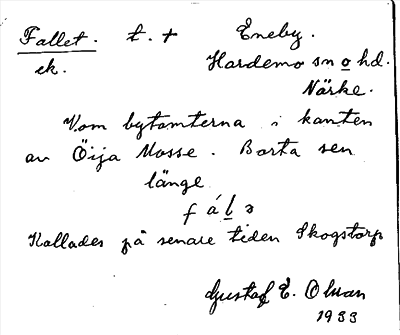 Fallet. t. + Eneby.
ek. Hardemo sn o hd.
Närke.
Vom bytomterna i kanten
av Öija Mosse. Borta sen
länge
fálə
Kallades på senare tiden Skogstorp
Gustaf E. Olman
1933